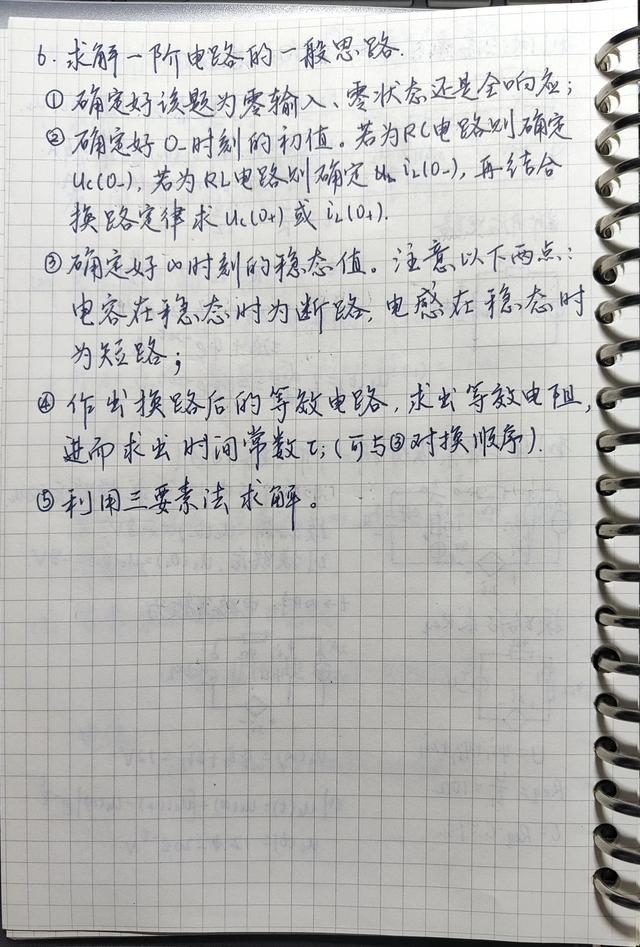 6. 求解一阶电路的一般思路.
① 确定好该题为零输入、零状态还是全响应;
② 确定好 0_时刻的初值。若为RC电路则确定
uc(0_), 若为RL电路则确定 iL(0_), 再结合
换路定律求 uc(0+) 或 iL(0+).
③ 确定好∞时刻的稳态值。注意以下两点:
电容在稳态时为断路, 电感在稳态时
为短路;
④ 作出换路后的等效电路, 求出等效电阻,
进而求出时间常数τ; (可与③对换顺序).
⑤ 利用三要素法求解。